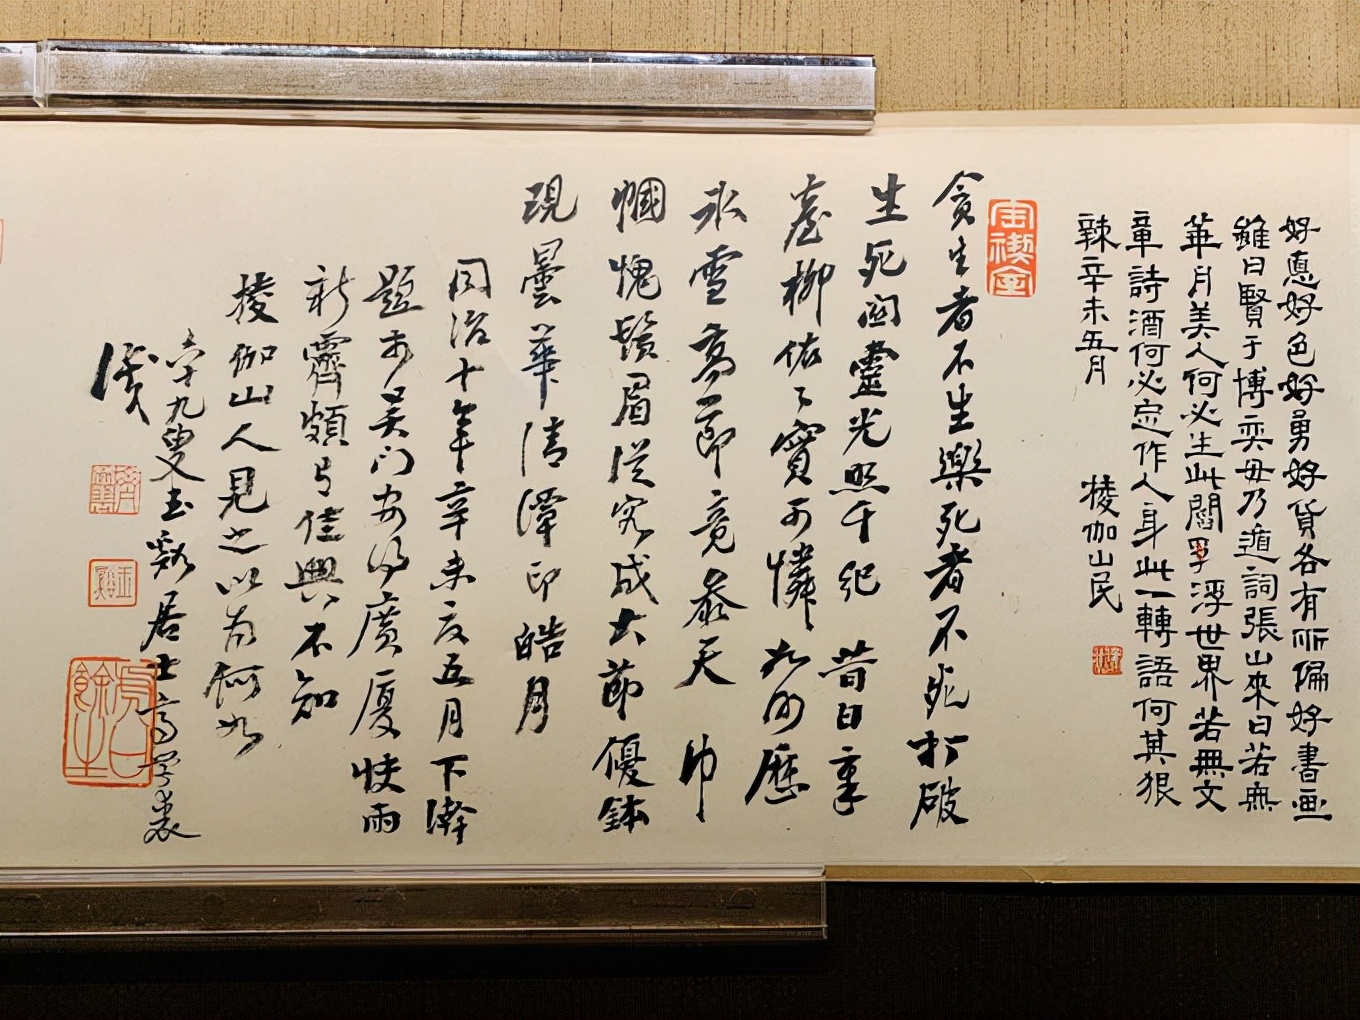 好惪好色好勇好貨各有所偏好書画
雖曰賢于博奕毋乃遁詞張山來曰若無
華月美人何必生此閻孚浮世界若無文
章詩酒何必定作人身此一轉語何其狠
辣辛未五月　棱伽山民
貪生者不生樂死者不死打破
生死関靈光照千紀　昔日章
臺柳依〻實可憐如何歷
冰雪高節竟參天　巾
幗愧鬚眉從容成大節優鉢
現曇華清潭印皓月
同治十年辛未夏五月下澣
題於吳門安得廣廈快雨
新霽頗有佳興不知
棱伽山人見之以為何如
六十九叟玉谿居士